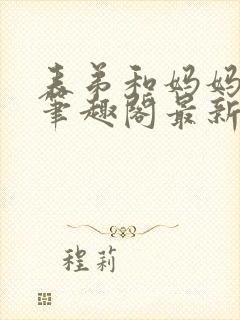 表弟和妈妈
笔趣阁最新
程莉